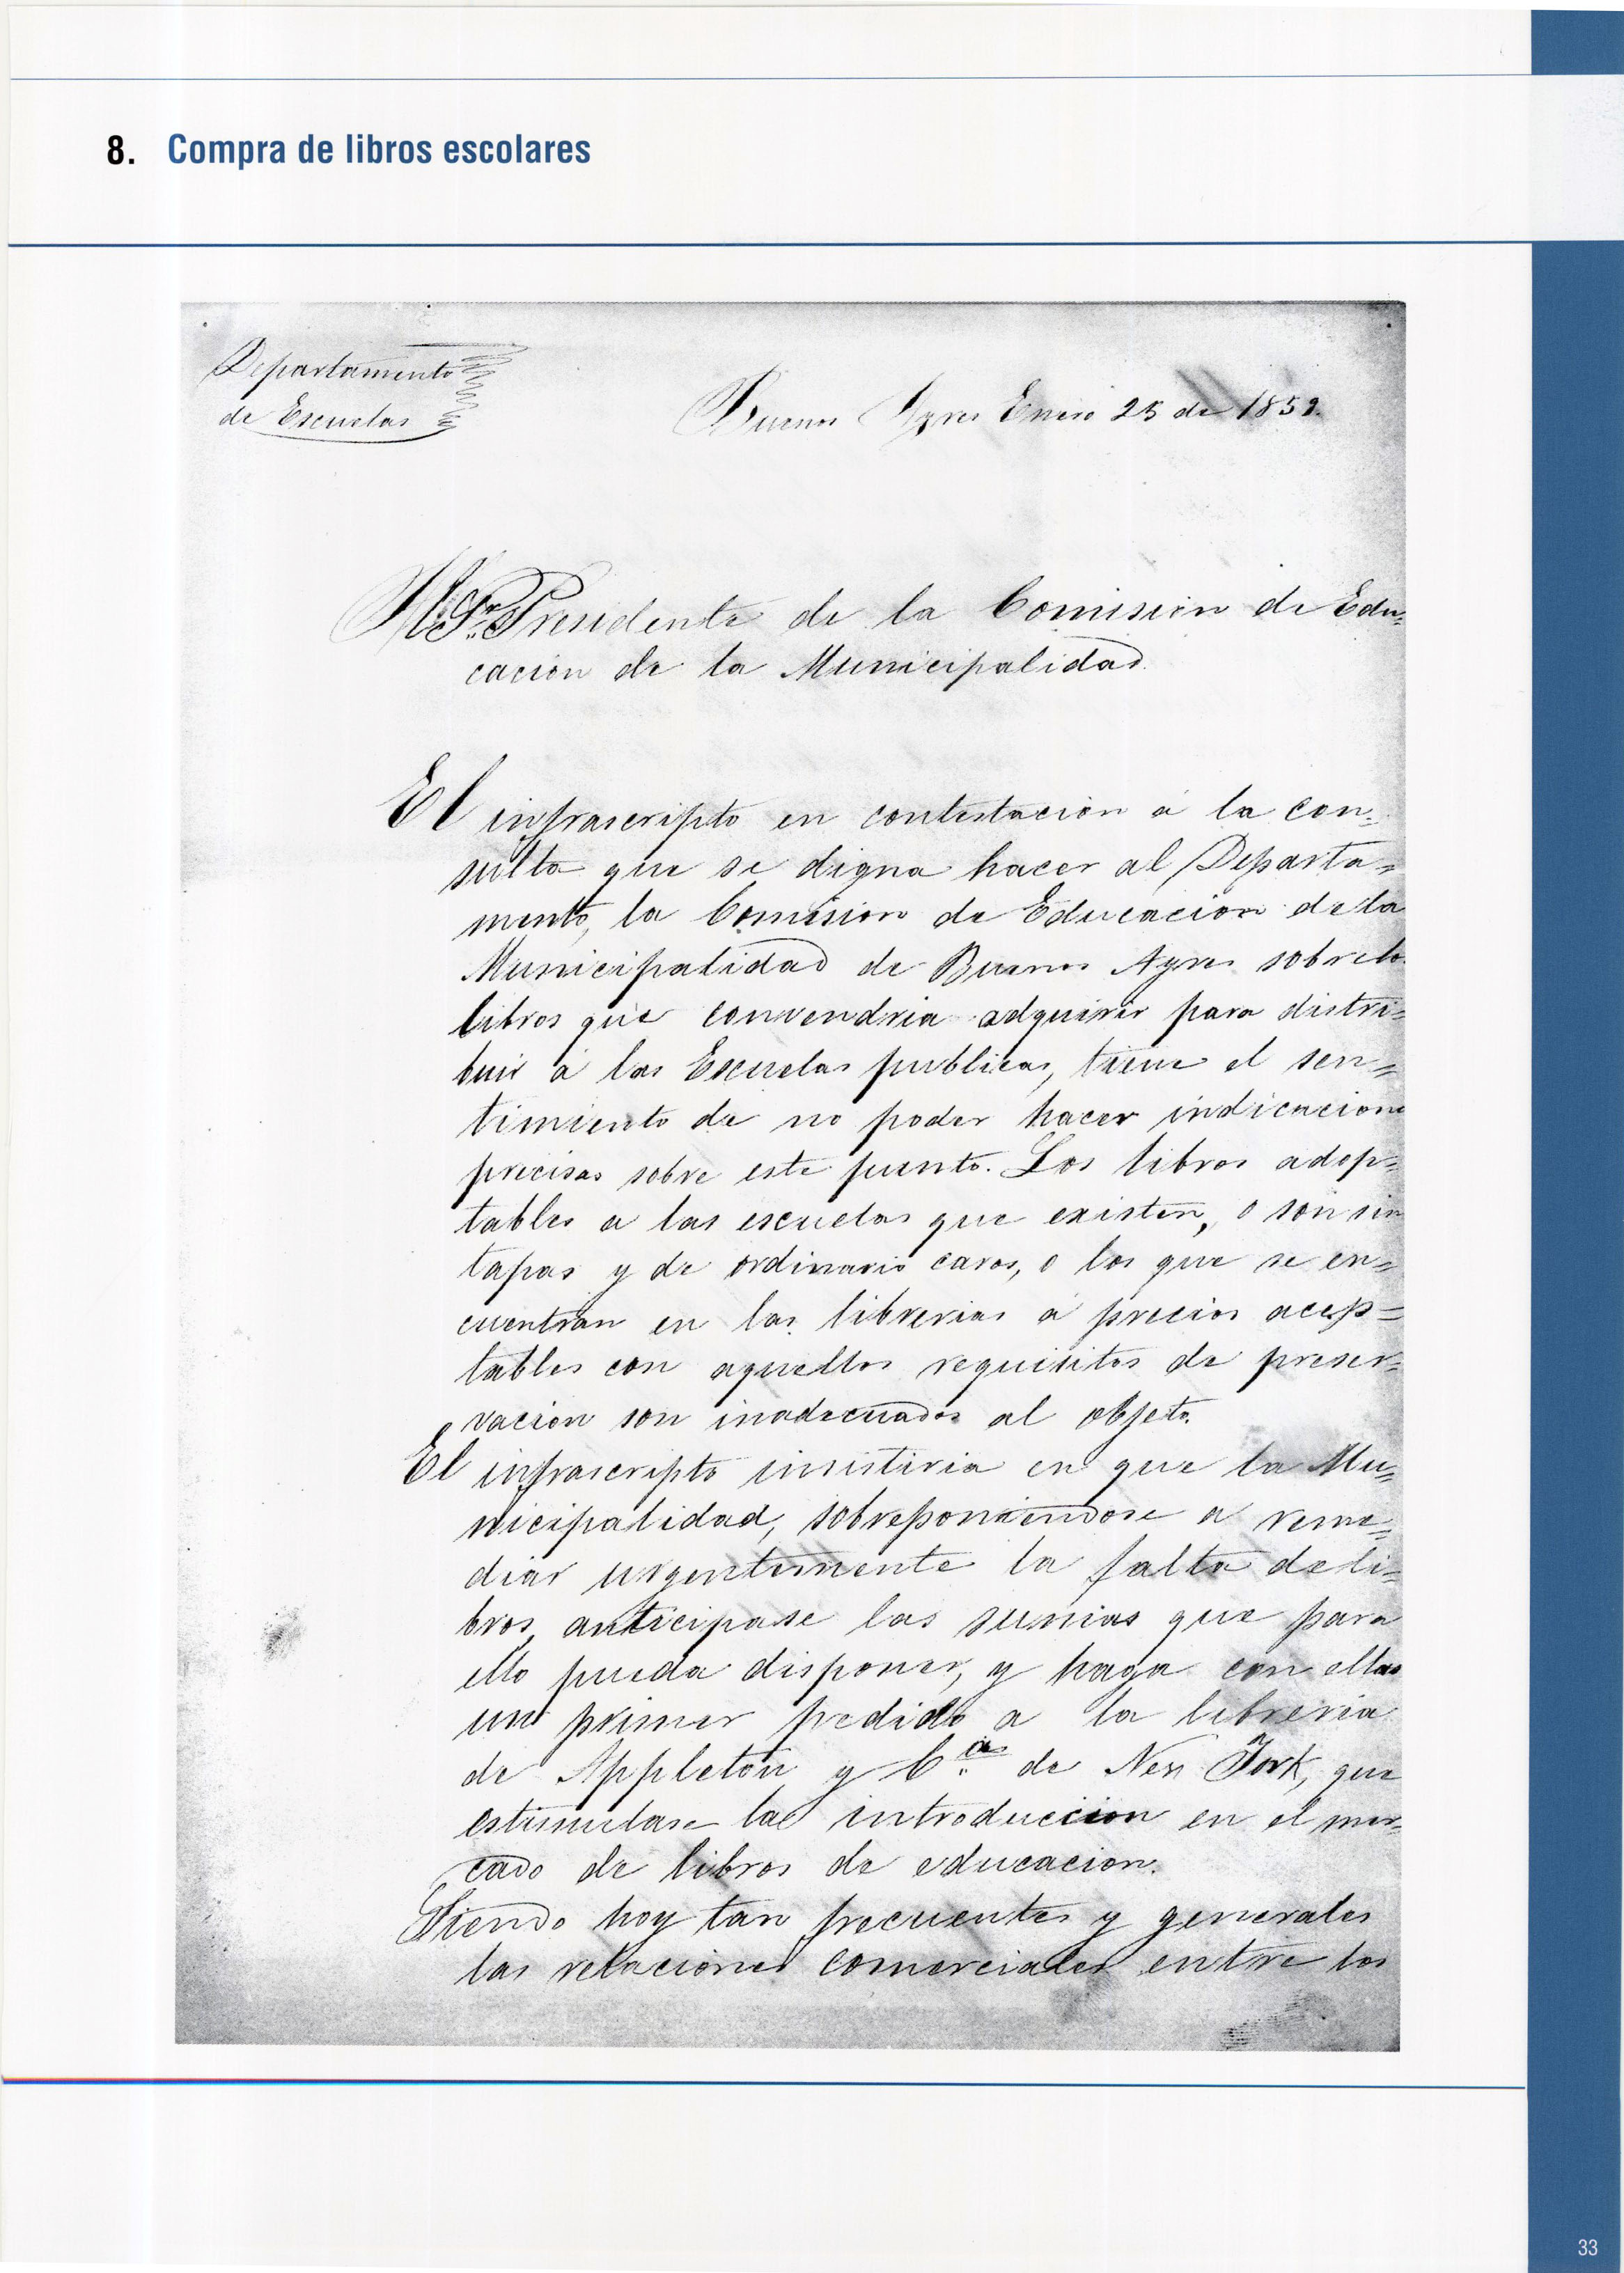 8. Compra de libros escolares
Departamento
de Escuelas
Buenos Ayres Enero 25 de 1859.
Al Sr. Presidente de la Comision de Edu=
cacion de la Municipalidad.
El infrascripto en contestacion á la con=
sulta que se digna hacer al Departa=
mento, la Comision de Educacion de la
Municipalidad de Buenos Ayres sobre lo
libros que convendria adquirir para distri=
buir á las Escuelas publicas, tiene el sen=
timiento de no poder hacer indicacione
precisas sobre este punto. Los libros adop=
tables a las escuelas que existen, o son sin
tapas y de ordinario caros, o los que se en=
cuentran en las librerias á precios acep=
tables con aquellos requisitos de preser=
vacion son inadecuados al objeto.
El infrascripto insistiria en que la Mu=
nicipalidad, sobreponiendose a reme=
diar urgentemente la falta de li=
bros anticipase las sumas que para
ello pueda disponer, y haga con ellas
un primer pedido a la libreria
de Appleton y Ca. de New York, que
estimulase la introduccion en el mer=
cado de libros de educacion.
Siendo hoy tan frecuentes y generales
las relaciones comerciales entre los
33